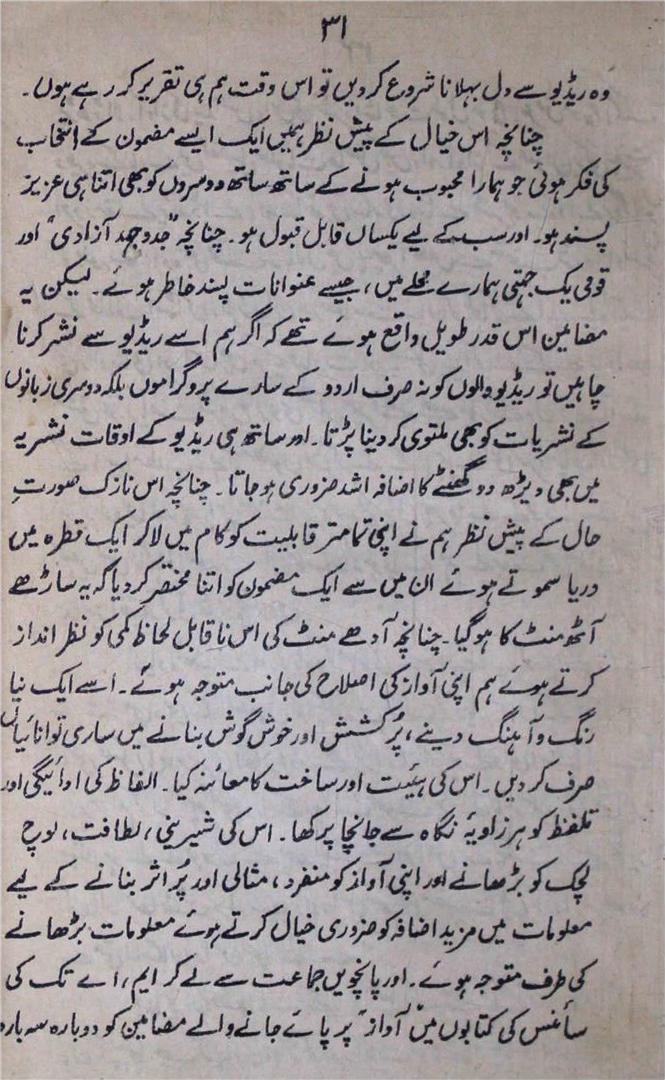 ۳۱
وہ ریڈیو سے دل بہلانا شروع کر دیں تو اس وقت ہم ہی تقریر کر رہے ہوں۔
چنانچہ اس خیال کے پیش نظر ہمیں ایک ایسے مضمون کے انتخاب
کی فکر ہوئی جو ہمارا محبوب ہونے کے ساتھ ساتھ دوسروں کو بھی اتنا ہی عزیز
پسند ہو۔ اور سب کے لیے یکساں قابل قبول ہو۔ چنانچہ "جدوجہد آزادی" اور
قومی یک جہتی ہمارے محلے میں، جیسے عنوانات پسند خاطر ہوئے۔ لیکن یہ
مضامین اس قدر طویل واقع ہوئے تھے کہ اگر ہم اسے ریڈیو سے نشر کرنا
چاہیں تو ریڈیو والوں کو نہ صرف اردو کے سارے پروگراموں بلکہ دوسری زبانوں
کے نشریات کو بھی ملتوی کر دینا پڑتا۔ اور ساتھ ہی ریڈیو کے اوقات نشریہ
میں بھی ڈیڑھ دو گھنٹے کا اضافہ اشد ضروری ہو جاتا۔ چنانچہ اس نازک صورتِ
حال کے پیش نظر ہم نے اپنی تمامتر قابلیت کو کام میں لا کر ایک قطرہ میں
دریا سموتے ہوئے ان میں سے ایک مضمون کو اتنا مختصر کر دیا کہ یہ ساڑھے
آٹھ منٹ کا ہو گیا۔ چنانچہ آدھے منٹ کی اس ناقابل لحاظ کمی کو نظر انداز
کرتے ہوئے ہم اپنی آواز کی اصلاح کی جانب متوجہ ہوئے۔ اسے ایک نیا
رنگ و آہنگ دینے، پُرکشش اور خوش گوش بنانے میں ساری توانائیاں
صرف کر دیں۔ اس کی ہیئت اور ساخت کا معائنہ کیا۔ الفاظ کی ادائیگی اور
تلفظ کو ہر زاویۂ نگاہ سے جانچا پرکھا۔ اس کی شیرینی، لطافت، لوچ
لچک کو بڑھانے اور اپنی آواز کو منفرد، مثالی اور پُر اثر بنانے کے لیے
معلومات میں مزید اضافہ کو ضروری خیال کرتے ہوئے معلومات بڑھانے
کی طرف متوجہ ہوئے۔ اور پانچویں جماعت سے لے کر ایم، اے تک کی
سائنس کی کتابوں میں "آواز" پر پائے جانے والے مضامین کو دوبارہ سہ بارہ